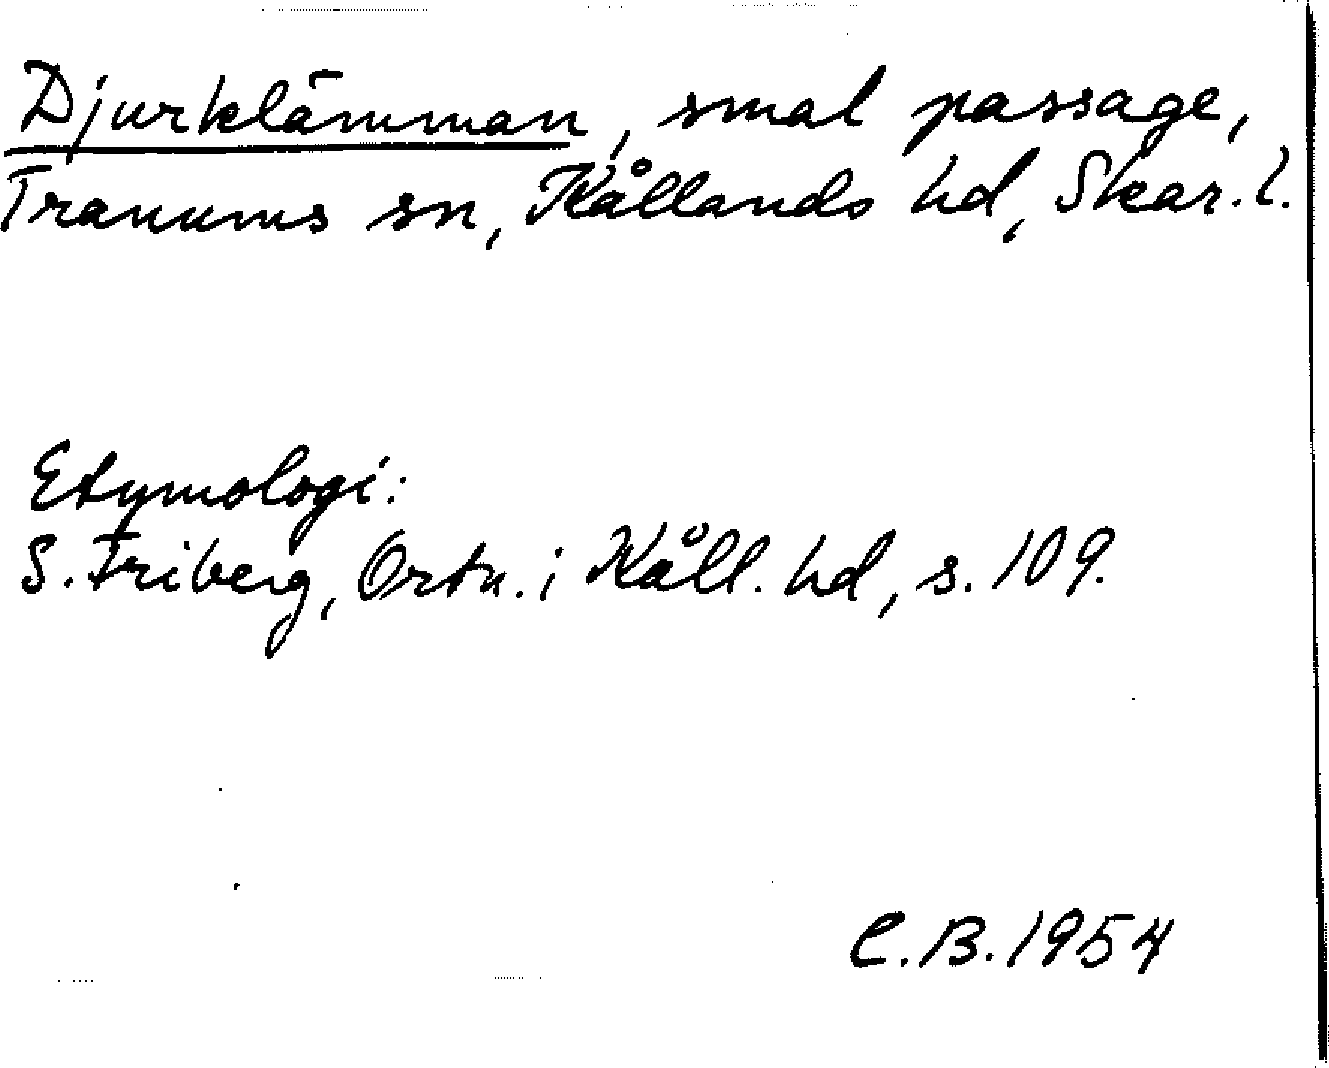 Djurklämman, smal passage,
Tranums sn, Kållands hd, Skar. l.
Etymologi:
S. Friberg, Ortn. i Kåll. hd, s. 109.
C.B. 1954